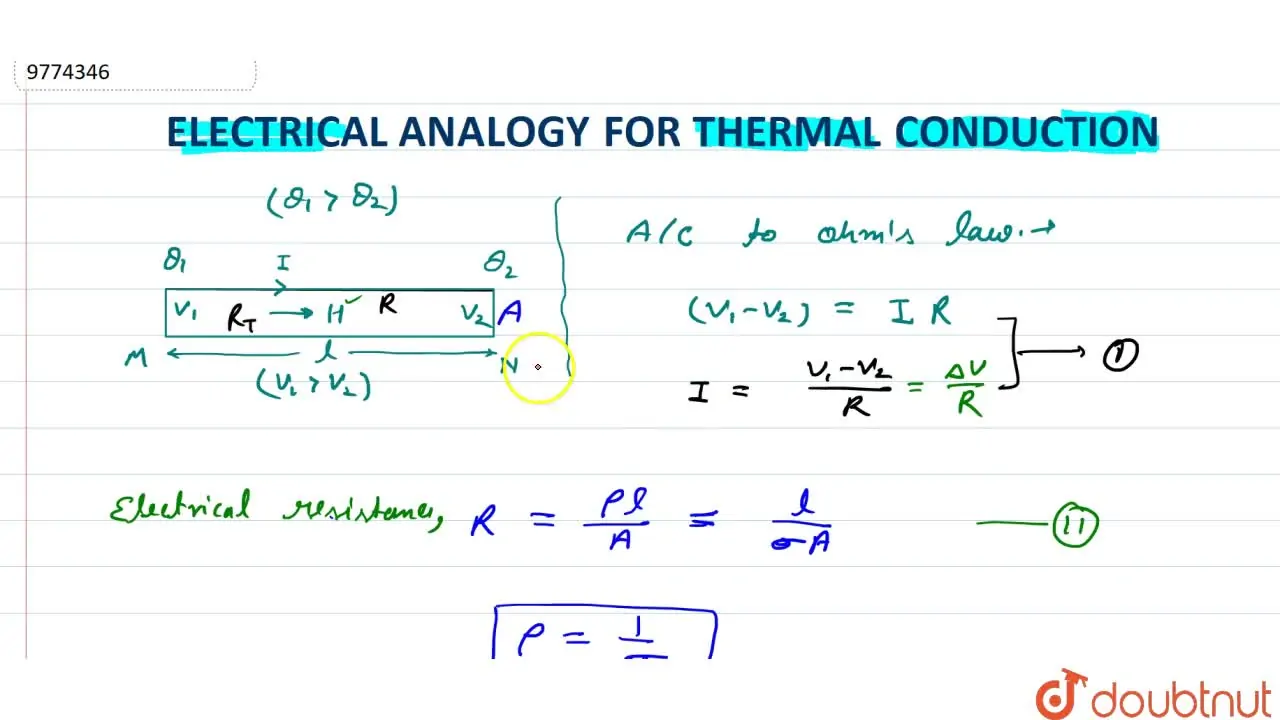 9774346
ELECTRICAL ANALOGY FOR THERMAL CONDUCTION
(θ1 > θ2)
θ1 I θ2
V1 RT → H ✓ R V2 A
M ← l → N
(V1 > V2)
A/C to ohm's law. →
(V1 - V2) = I R
I = V1 - V2 / R = ΔV / R → (I)
Electrical resistance, R = ρl / A = l / σA — (II)
ρ = 1 /
doubtnut